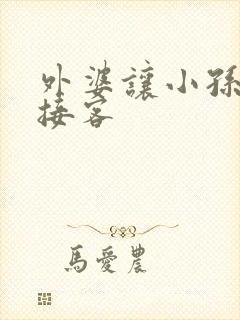 外婆讓小孫
接客
馬愛農